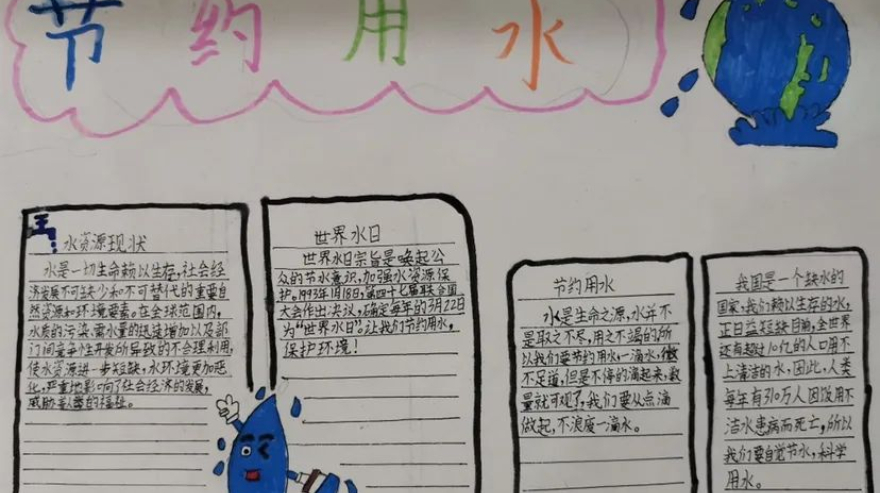 节约用水
水资源现状
水是一切生命赖以生存,社会经
济发展不可缺少和不可替代的重要自
然资源和环境要素。在全球范围内,
水质的污染、需水量的迅速增加以及部
门间竞争性开发所导致的不合理利用,
使水资源进一步短缺,水环境更加恶
化,严重地影响了社会经济的发展,
威胁着人类的福祉。
世界水日
世界水日宗旨是唤起公
众的节水意识,加强水资源保
护。1993年1月18日,第四十七届联合国
大会作出决议,确定每年的3月22日
为“世界水日”。让我们节约用水,
保护环境!
节约用水
水是生命之源,水并不
是取之不尽,用之不竭的所
以我们要节约用水,一滴水,微
不足道,但是不停的滴起来,数
量就可观了,我们要从点滴
做起,不浪废一滴水。
我国是一个缺水的
国家,我们赖以生存的水,
正日益短缺目前,全世界
还有超过10亿的人口用不
上清洁的水,因此,人类
每年有310万人因饮用不
洁水患病而死亡,所以
我们要自觉节水,科学
用水。